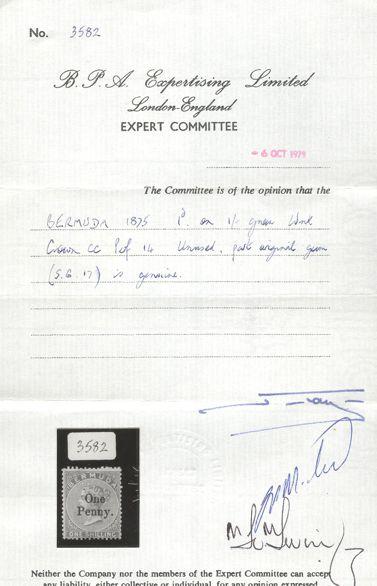 No. 3582
B.P.A. Expertising Limited
London-England
EXPERT COMMITTEE
- 6 OCT 1979
The Committee is of the opinion that the
BERMUDA 1875 1d. on 1/- green Wmk
Crown CC Perf 14 Unused, part original gum
(S.G. 17) is genuine.
3582
BERMUDA
One
Penny.
ONE SHILLING
Neither the Company nor the members of the Expert Committee can accept
any liability, either collective or individual, for any opinion expressed